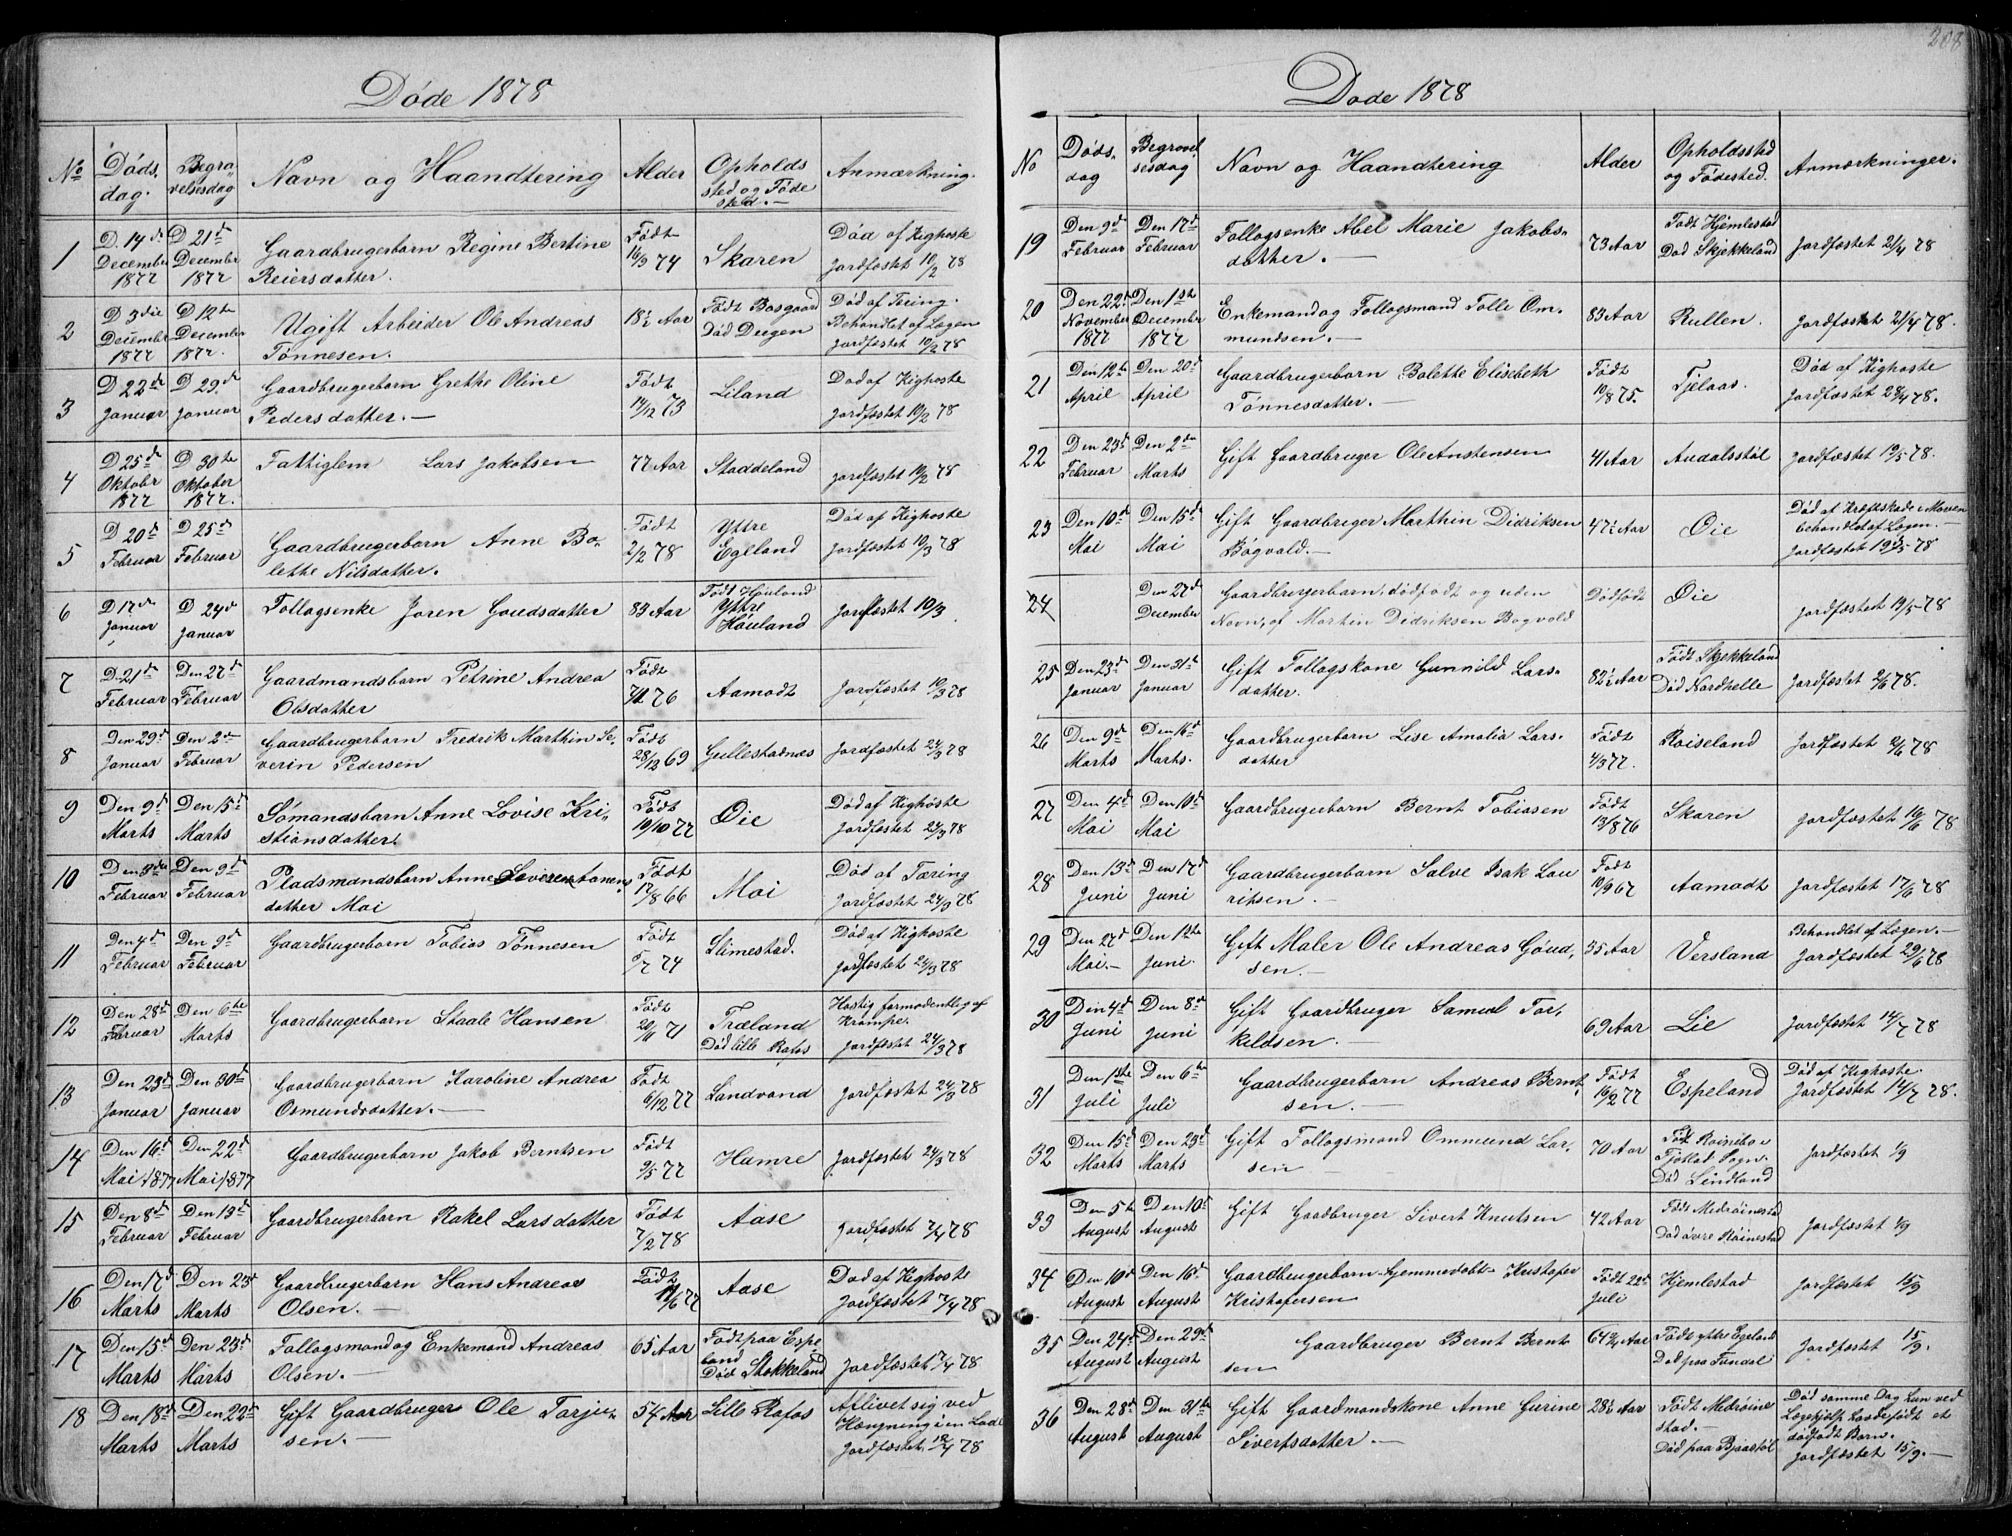 208
Døde 1878
No
Døds,
dag.
Begra,
velsesdag
Navn og Haandtering
Alder
Opholds
sted og Føde
sted.—
Anmærkning.
1
D. 14de
December
1877
D 21de
December
1877
Gaardbrugerbarn Regine Bertine
Reiersdatter.
Født
16/3 74
Skaren
Død af Kighoste
Jordfæstet 10/2 78
2
D 3die
December
1877
D 12te
December
1877.
Ugift Arbeider Ole Andreas
Tønnesen.
18½ Aar
Født Bosgaard
Død Deegen
Død af Tæring.
Behandlet af Lægen
Jordfæstet 10/2 78
3
D 22de
Januar
D 29de
Januar
Gaardbrugerbarn Grethe Oline
Pedersdatter.—
Født
14/12 73
Liland
Død af Kighoste
Jordfæstet 10/2 78
4
D 25de
Oktober
1877
D 30te
Oktober
1877.
Fattiglem Lars Jakobsen
77 Aar
Staddeland
Jordfæstet 10/2 78
5
D 20de
Februar
D 25de
Februar
Gaardbrugerbarn Anne Bo,
lette Nilsdatter.
Født
2/2 78
Yttre
Egeland
Død af Kighoste
Jordfæstet 10/3 78
6
D 17de
Januar
D 24de
Januar
Follogsenke Joren Goudsdatter
83 Aar
Født Høuland
Yttre
Høuland
Jordfæstet 10/3
7
D. 21de
Februar
Den 27de
Februar
Gaardmandsbarn Petrine Andrea
Olsdatter
Født
76
Aamodt
Jordfæstet 10/3 78
8
Den 29de
Januar
Den 2den
Februar
Gaardbrugerbarn Fredrik Marthin Se,
verin Pedersen
Født
28/12 69
Gullestadnæs
Jordfæstet 24/3 78
9
Den 9de
Marts
Den 15de
Marts
Sømandsbarn Anne Lovise Kri,
stiansdatter.
Født
19/10 77
Øie
Død af Kighoste
Jordfæstet 24/3 78
10
Den 3die
Februar
Den 9de
Februar
Pladsmandsbarn Anne
datter Moi
Født
17/8 66
Moi
Død af Tæring
Jordfæstet 24/3 78
11
Den 4de
Februar
Den 9de
Februar
Gaardbrugerbarn Tobias Tønnesen
Født
5/7 74
Slimestad.
Død af Kighoste
Jordfæstet 24/3 78
12
Den 28de
Februar
Den 6te
Marts
Gaardbrugerbarn Staale Hansen
Født
20/1 71
Træland
Død lille Rafos
Hastig formodentlig af
Krampe.
Jordfæstet 24/3 78
13
Den 23de
Januar
Den 30de
Januar
Gaardbrugerbarn Karoline Andrea
Osmundsdatter.—
Født
6/12 77
Landvand
Jordfæstet 24/3 78
14
Den 16de
Mai 1877
Den 22de
Mai 1877
Gaardbrugerbarn Jakob Berntsen
Født
9/5 77
Hamre
Jordfæstet 24/3 78
15
Den 8de
Februar
Den 13de
Februar
Gaardbrugerbarn Rakel Larsdatter
Født
7/2 78
Aase
Jordfæstet 7/4 78
16
Den 17de
Marts
Den 23de
Marts
Gaardbrugerbarn Hans Andreas
Olsen.—
Født
/6 77
Aase
Død af Kighoste
Jordfæstet 7/4 78
17
Den 15de
Marts
Den 23de
Marts
Follogsmand og Enkemand Andreas
Olsen.—
65 Aar
Født paa Espe
land
Død Stokkeland
Jordfæstet 7/4 78
18
Den 18de
Marts
Den 22de
Marts
Gift Gaardbruger Ole Tarje,
sen.—
54 Aar
Lille Rafos
Aflivet sig ved
Hængning i en Lade
Jordfæstet 12/4 78
Døde 1878
No
Døds,
dag
Begravel
sesdag
Navn og Haandtering
Alder
Opholdssted
og Fødested.
Anmærkninger.
19
Den 9de
Februar
Den 17de
Februar
Follogsenke Abel Marie Jakobs,
datter.—
73 Aar
Født Hjemlestad
Død Skjekkeland
Jordfæstet 21/4 78
20
Den 22de
November
1877
Den 1ste
December
1877
Enkemand og Follogsmand Tolle Om,
mundsen.—
83 Aar
Rullen.
Jordfæstet 21/4 78.
21
Den 12te
April
Den 20de
April
Gaardbrugerbarn Bolette Elisebeth
Tønnesdatter.—
Født
10/8 75.
Fjelaas.
Død af Kighoste
Jordfæstet 28/4 78.
22
Den 23de
Februar
Den 2den
Marts
Gift Gaardbruger Ole Anstensen
41 Aar
Audalsstøl
Jordfæstet 19/5 78.
23
Den 10de
Mai
Den 15de
Mai
Gift Gaardbruger Marthin Didriksen
Bøgvald.—
47½ Aar
Øie
Død af Kræftskade i Maven
behandlet af Lægen.
Jordfæstet 19/5 78
24
Den 27de
December
Gaardbrugerbarn, dødfødt og uden
Navn, af Martin Didriksen Bøgvald
Dødfødt
Øie
Jordfæstet 19/5 78
25
Den 23de
Januar
Den 31te
Januar
Gift Follogskone Gunnild Lars,
datter.
82½ Aar
Født Skjekkeland
Død Nordhelle
Jordfæstet 2/6 78.
26
Den 9de
Marts
Den 16de
Marts.
Gaardbrugerbarn Lise Amalia Lars,
datter
Født
4/3 77.
Røiseland
Jordfæstet 2/6 78
27
Den 4de
Mai
Den 10de
Mai
Gaardbrugerbarn Bernt Tobiasen
Født
13/8 76
Skaren
Jordfæstet 16/6 78
28
Den 13de
Juni
Den 17de
Juni
Gaardbrugerbarn Salve Isak Lau
ritsen.—
Født
10/9 67
Aamodt
Jordfæstet 17/6 78
29
Den 27de
Mai.—
Den 1ste
Juni.
Gift Maler Ole Andreas Goud,
sen.—
35 Aar
Versland
Behandlet af Lægen.—
Jordfæstet 29/6 78
30
Den 4de
Juni
Den 8de
Juni
Gift Gaardbruger Samuel Tor,
kildsen.—
69 Aar
Lie
Jordfæstet 14/7 78
31
Den 1ste
Juli
Den 6te
Juli
Gaardbrugerbarn Andreas Bernt,
sen.—
Født
16/2 77
Espeland
Død af Kighoste.
Jordfæstet 14/7 78.
32
Den 15de
Marts
Den 23de
Marts
Gift Follogsmand Ommund Lar,
sen—
70 Aar
Født
Fjotland Sogn.
Død Lindland
Jordfæstet 1/9
33
Den 5te
August
Den 10de
August
Gift Gaardbruger Sivert Knutsen
42 Aar
Født Medrøinestad
Død øvre Røinestad
Jordfæstet 1/9
34
Den 10de
August
Den 16de
August
Gaardbrugerbarn hjemmedøbt Kristofer
Kristofersen
Født 22de
Juli
Hjemlestad
Jordfæstet 15/9
35
Den 24de
August
Den 29de
August
Gaardbruger Bernt Bernt
sen
64¾ Aar
Født yttre Egeland
Død paa Fundal
Jordfæstet 15/9.
36
Den 28de
August
Den 31te
August
Gift Gaardmandskone Anne Gurine
Sivertsdatter.—
28½ Aar
Født Medrøine
stad.
Død paa Bjaastøl
Død samme Dag hun ved
Lægehjælp havde født et
dødfødt Barn.
Jordfæstet 15/9.—